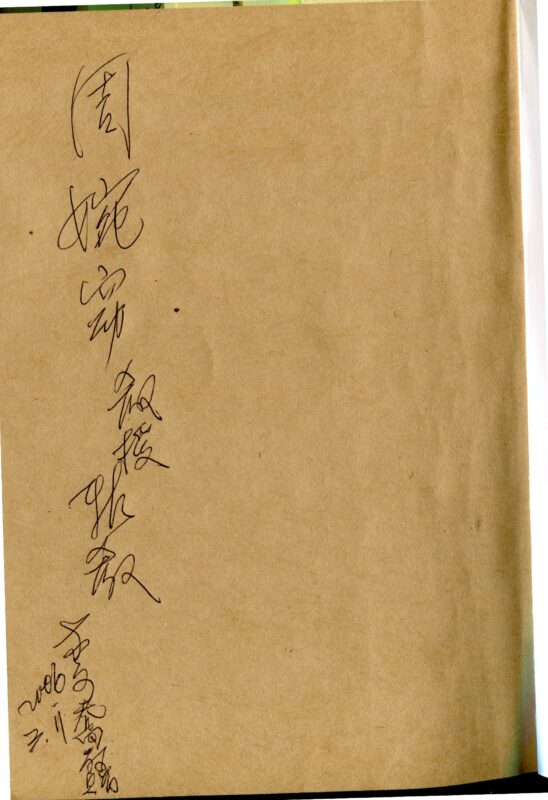 周婉窈教授指教
李喬贈
2006
2.11